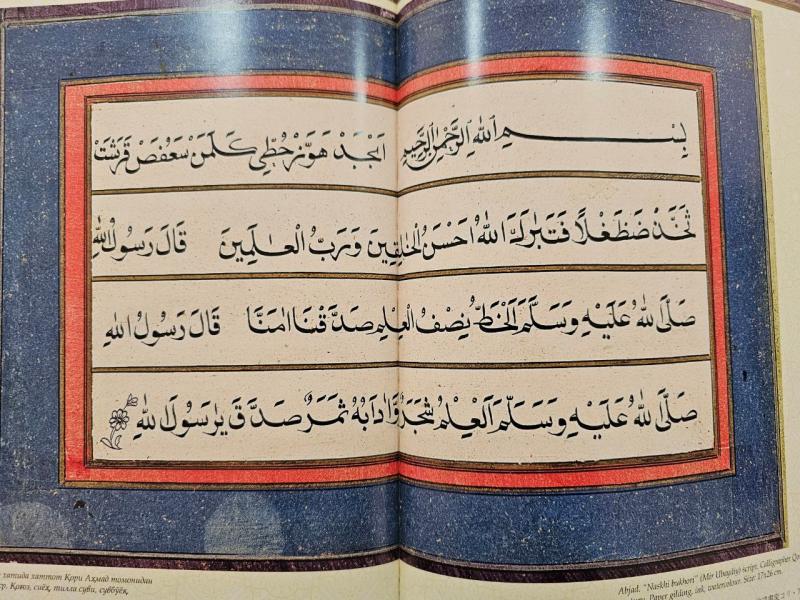 بِسْمِ اللهِ الرَّحْمٰنِ الرَّحِيْمِ اَبْجَدْ هَوَّزْ حُطِّي كَلَمَنْ سَعْفَصْ قَرَشَتْ
ثَخَذْ ضَظَغْلًا فَتَبَارَكَ اللهُ اَحْسَنُ الْخَالِقِينَ وَرَبُّ الْعَالَمِينَ قَالَ رَسُولُ اللهِ
صَلَّى اللهُ عَلَيْهِ وَسَلَّمَ اَلْخَطُّ نِصْفُ الْعِلْمِ صَدَّقْنَا اٰمَنَّا قَالَ رَسُولُ اللهِ
صَلَّى اللهُ عَلَيْهِ وَسَلَّمَ اَلْعِلْمُ شَجَرٌ وَاٰدَابُهُ ثَمَرٌ صَدَّقَ يٰا رَسُولَ اللهِ
хатида хаттот Қори Аҳмад томонидан
Қоғоз, сиёҳ, тилла суви, сувбўёқ.
Abjad. "Naskhi bukhori" (Mir Ubaydiy) script. Calligrapher
Paper gilding, ink, watercolour. Size: 17x26 cm.